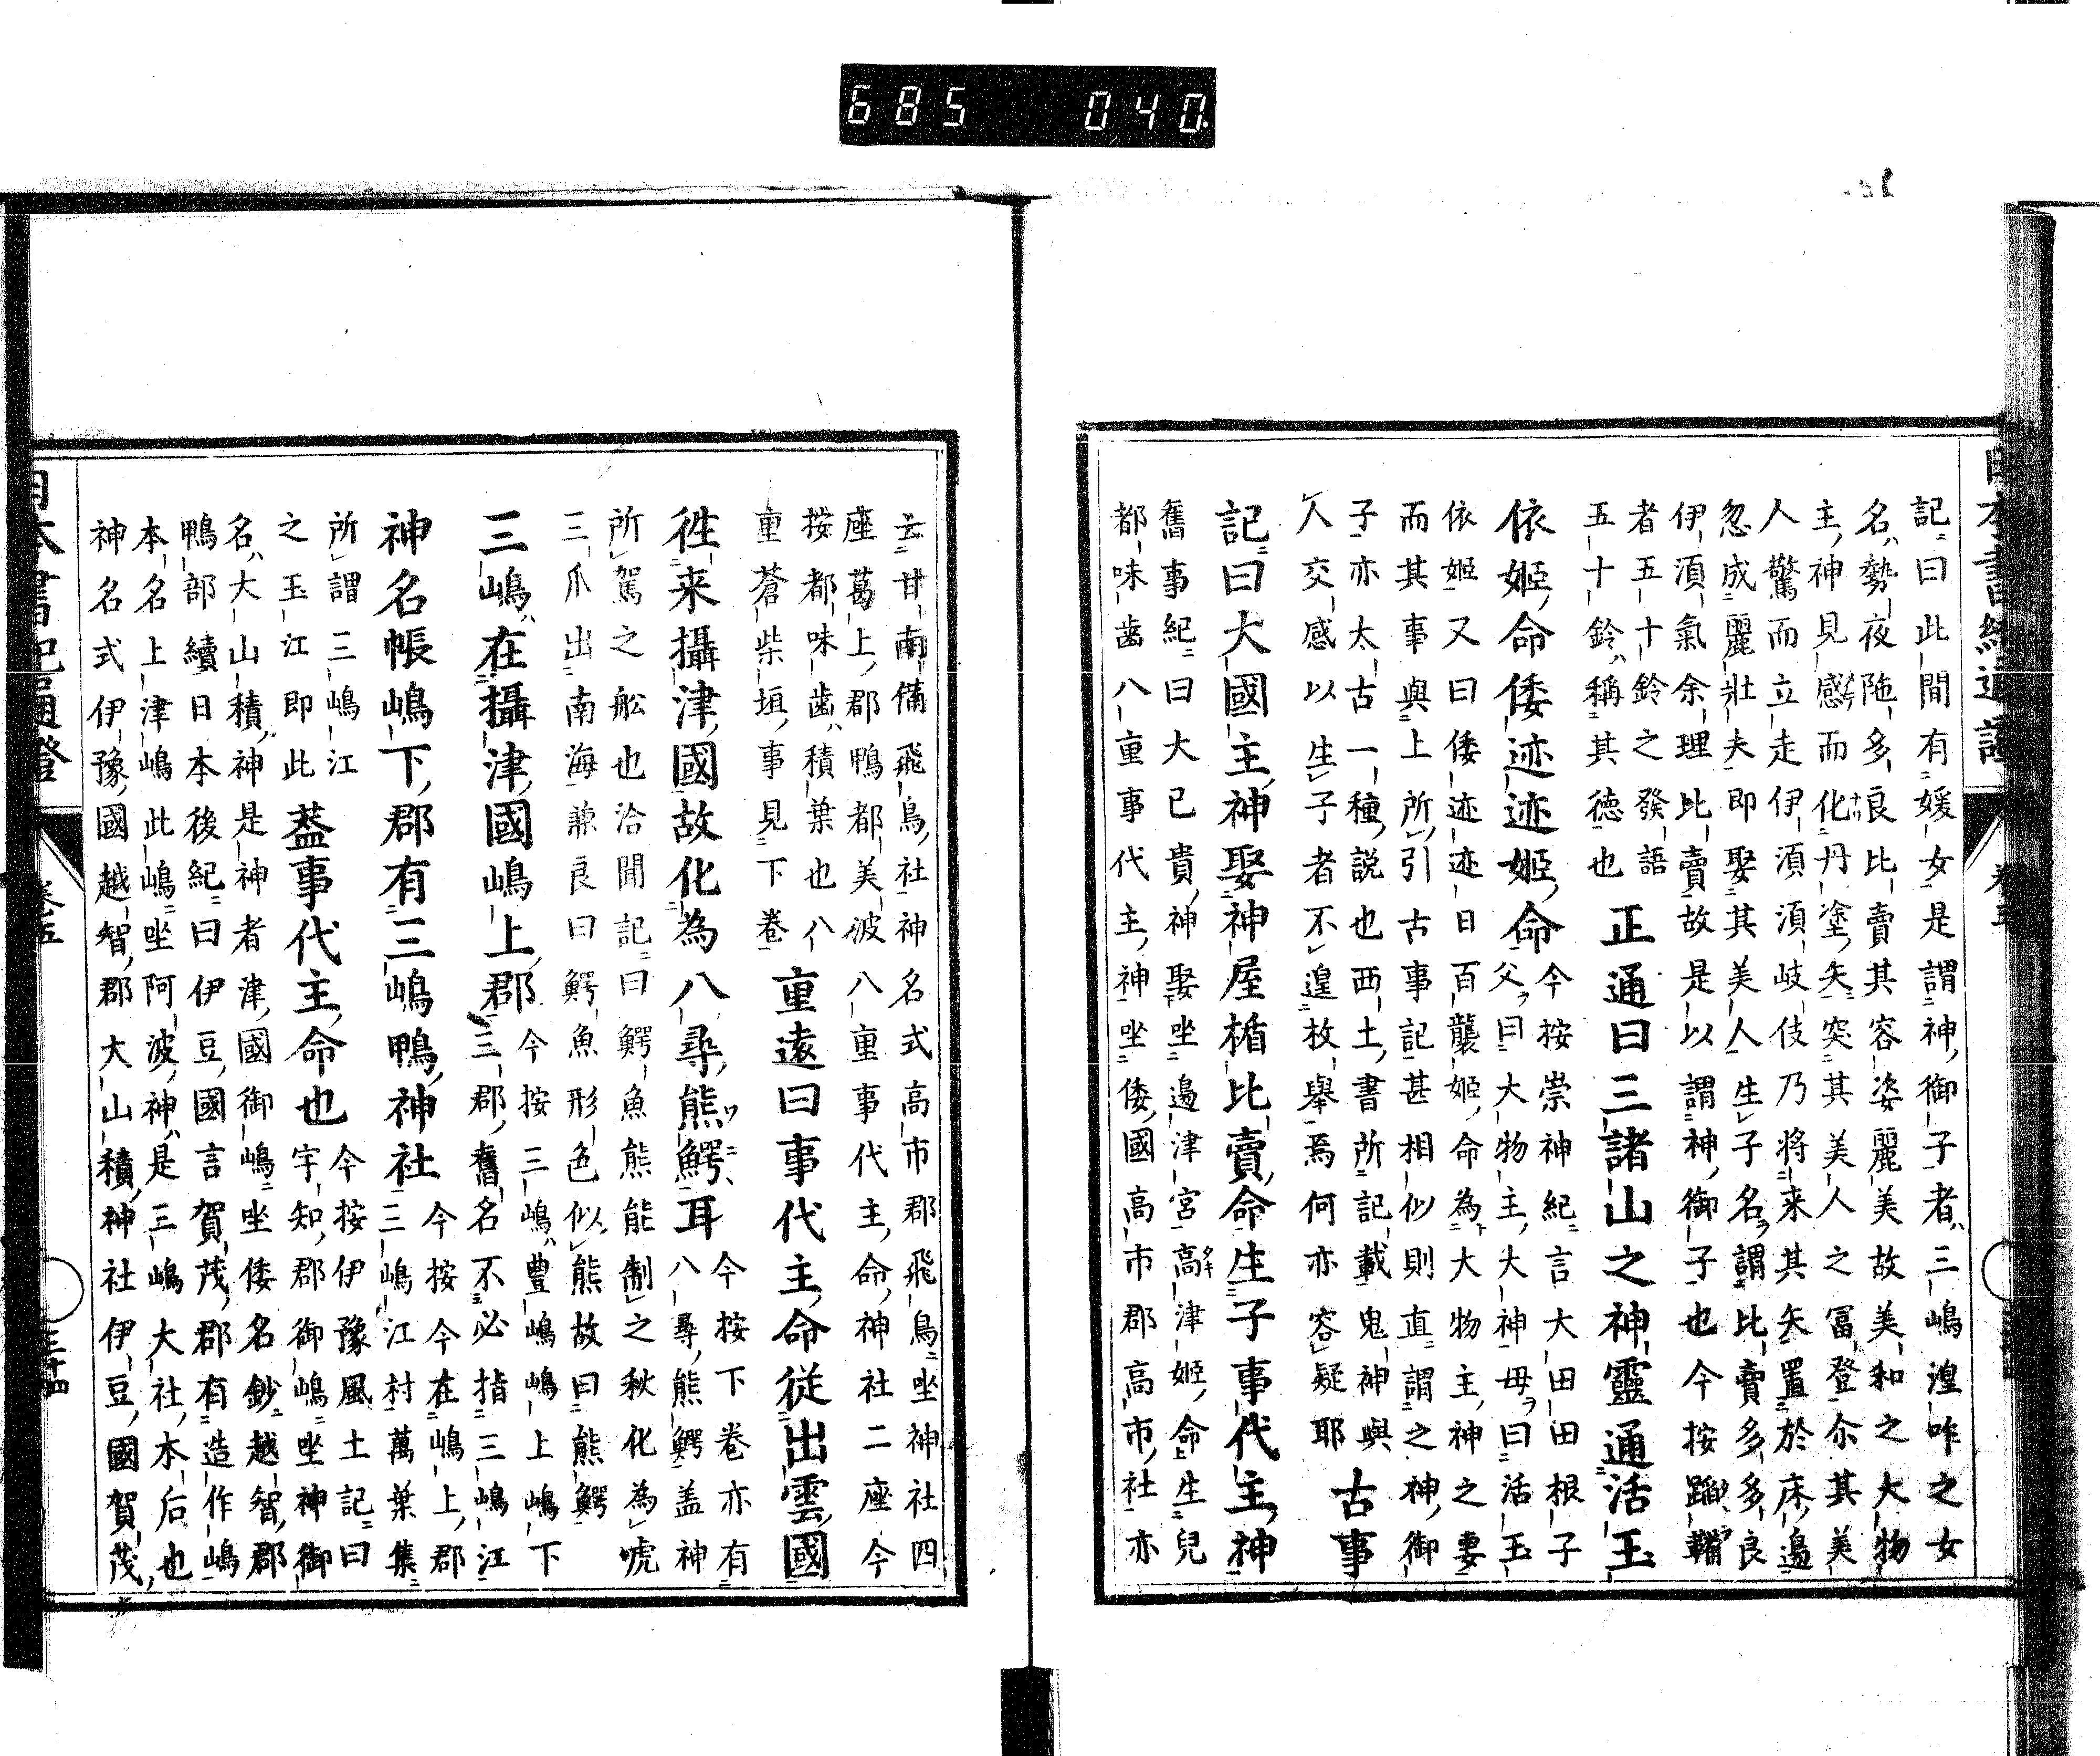 685 040
記曰此間有媛女是謂神御子者三嶋湟咋之女
名勢夜陁多良比賣其容姿麗美故美和之大物
主神見感而化丹塗矢突其美人之冨登尒其美
人驚而立走伊湏湏岐伎乃将来其矢置於床邉
忽成麗壯夫即娶其美人生子名謂比賣多多良
伊湏氣余理比賣故是以謂神御子也今按蹈鞴
者五十鈴之發語
五十鈴稱其徳也
正通曰三諸山之神靈通活玉
依姬命倭迹迹姬命
今按崇神紀言大田田根子
父曰大物主大神母曰活玉
依姬又曰倭迹迹日百襲姬命為大物主神之妻
而其事與上所引古事記甚相似則直謂之神御
子亦太古一種説也西土書所記載鬼神與
人交感以生子者不遑枚舉焉何亦容疑耶
古事
記曰大國主神娶神屋楯比賣命生子事代主神
舊事紀曰大己貴神娶坐邉津宮高津姬命生兒
都味齒八重事代主神坐倭國高市郡高市社亦
云甘南備飛鳥社神名式高市郡飛鳥坐神社四
座葛上郡鴨都美波八重事代主命神社二座今
按都味齒積葉也八
重蒼柴垣事見下卷
重遠曰事代主命従出雲國
徃来攝津國故化為八尋熊鰐耳
今按下卷亦有
八尋熊鰐盖神
所駕之舩也洽聞記曰鰐魚熊能制之秋化為虎
三爪出南海兼良曰鰐魚形色似熊故曰熊鰐
三嶋在攝津國嶋上郡
今按三嶋豊嶋嶋上嶋下
三郡舊名不必指三嶋江
神名帳嶋下郡有三嶋鴨神社
今按今在嶋上郡
三嶋江村萬葉集
所謂三嶋江
之玉江即此
葢事代主命也
今按伊豫風土記曰
宇知郡御嶋坐神御
名大山積神是神者津國御嶋坐倭名鈔越智郡
鴨部續日本後紀曰伊豆國言賀茂郡有造作嶋
本名上津嶋此嶋坐阿波神是三嶋大社本后也
神名式伊豫國越智郡大山積神社伊豆國賀茂
日本書紀通證
卷五
三十四